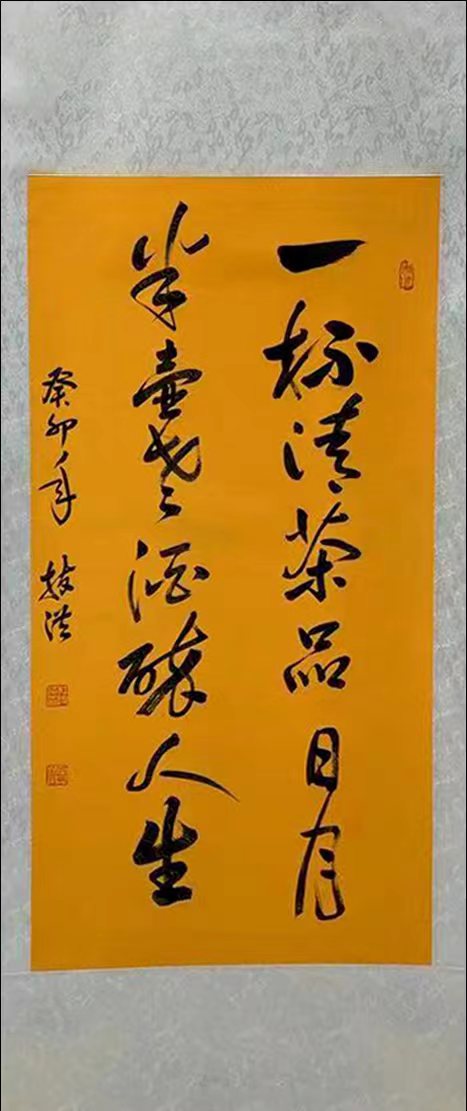 一杯清茶品日月
半壶老酒醉人生
癸卯年 技洪